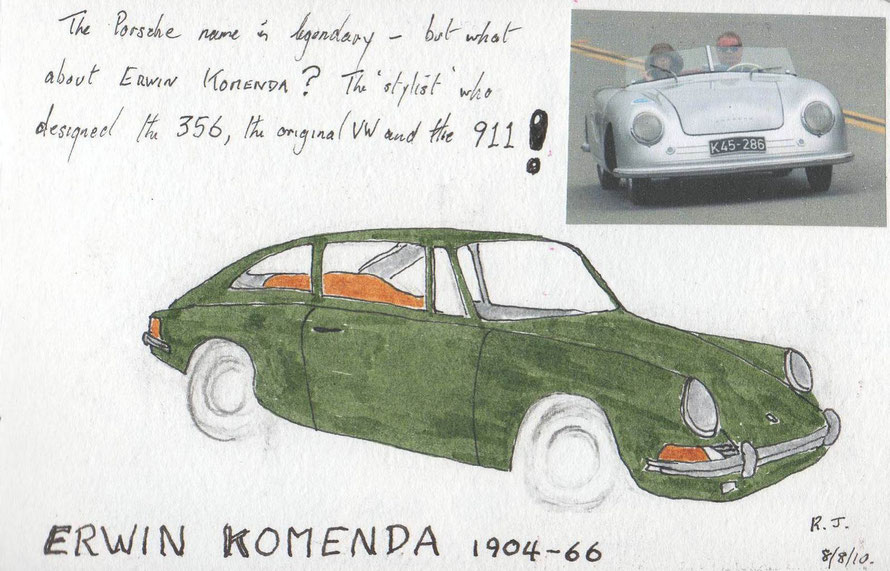 The Porsche name is legendary – but what
about ERWIN KOMENDA? The 'stylist' who
designed the 356, the original VW and the 911!
K45-286
ERWIN KOMENDA 1904-66
R.J.
8/8/10.